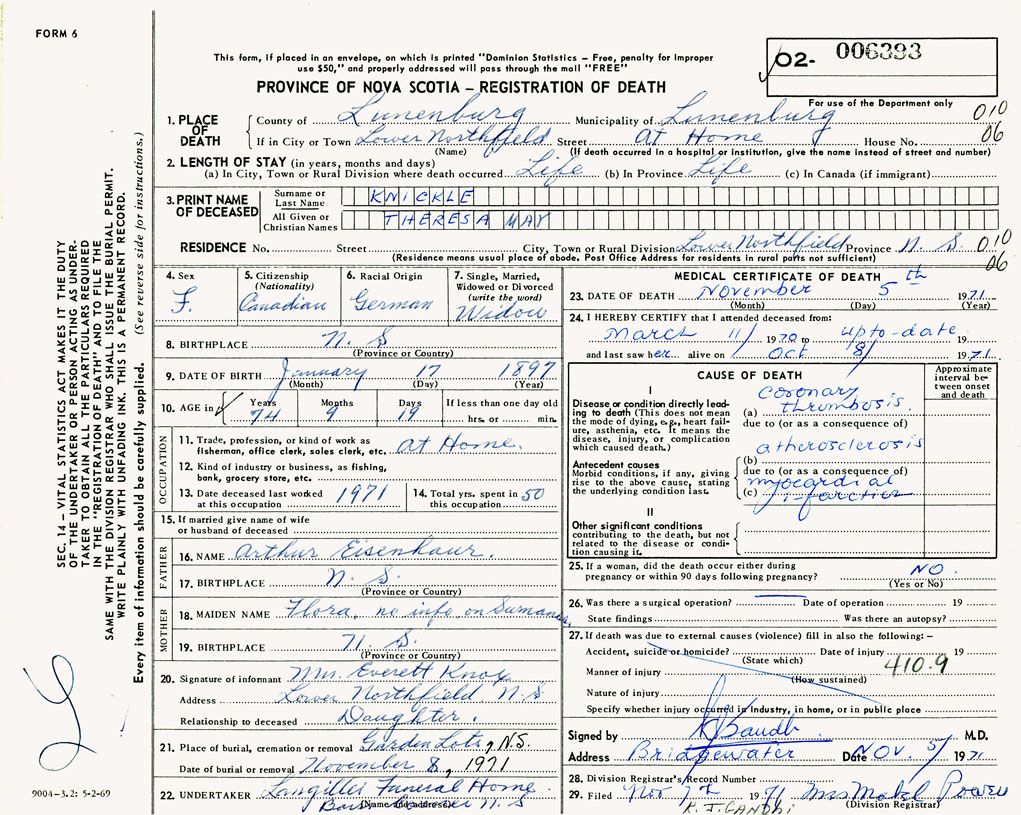 FORM 6
This form, if placed in an envelope, on which is printed "Dominion Statistics – Free, penalty for improper
use $50," and properly addressed will pass through the mail "FREE"
02- 006393
For use of the Department only
PROVINCE OF NOVA SCOTIA – REGISTRATION OF DEATH
010
06
1. PLACE OF DEATH
County of Lunenburg Municipality of Lunenburg
If in City or Town Lower Northfield Street At Home House No.
(Name) (If death occurred in a hospital or institution, give the name instead of street and number)
2. LENGTH OF STAY (in years, months and days)
(a) In City, Town or Rural Division where death occurred Life (b) In Province Life (c) In Canada (if immigrant)
3. PRINT NAME OF DECEASED
Surname or Last Name KNICKLE
All Given or Christian Names THERESA MAY
RESIDENCE No. Street City, Town or Rural Division Lower Northfield Province N. S. 010
(Residence means usual place of abode. Post Office Address for residents in rural parts not sufficient) 06
4. Sex
F.
5. Citizenship
(Nationality)
Canadian
6. Racial Origin
German
7. Single, Married,
Widowed or Divorced
(write the word)
Widow
8. BIRTHPLACE N. S
(Province or Country)
9. DATE OF BIRTH January 17 1897
(Month) (Day) (Year)
10. AGE in Years Months Days If less than one day old
74 9 19 hrs. or min.
OCCUPATION
11. Trade, profession, or kind of work as
fisherman, office clerk, sales clerk, etc. at Home.
12. Kind of industry or business, as fishing,
bank, grocery store, etc.
13. Date deceased last worked
at this occupation 1971
14. Total yrs. spent in
this occupation 50
15. If married give name of wife
or husband of deceased
FATHER
16. NAME Arthur Eisenhaur.
17. BIRTHPLACE N. S.
(Province or Country)
MOTHER
18. MAIDEN NAME Flora, no info on Surname,
19. BIRTHPLACE N. S.
(Province or Country)
20. Signature of informant Mrs. Everett Knox
Address Lower Northfield N.S
Relationship to deceased Daughter.
21. Place of burial, cremation or removal Garden Lots, N.S.
Date of burial or removal November 8, 1971
22. UNDERTAKER Langilles Funeral Home
(Name and address) N. S
MEDICAL CERTIFICATE OF DEATH
23. DATE OF DEATH November 5th 1971.
(Month) (Day) (Year)
24. I HEREBY CERTIFY that I attended deceased from:
March 11/ 1970 to up to-date 19
and last saw her alive on Oct 8/ 1971
CAUSE OF DEATH
Approximate
interval be-
tween onset
and death
I
Disease or condition directly lead-
ing to death (This does not mean
the mode of dying, e.g., heart fail-
ure, asthenia, etc. It means the
disease, injury, or complication
which caused death.)
(a) coronary
thrombosis.
due to (or as a consequence of)
atherosclerosis
Antecedent causes
Morbid conditions, if any, giving
rise to the above cause, stating
the underlying condition last.
(b)
due to (or as a consequence of)
myocardial
(c) infarction
II
Other significant conditions
contributing to the death, but not
related to the disease or condi-
tion causing it.
25. If a woman, did the death occur either during
pregnancy or within 90 days following pregnancy? NO.
(Yes or No)
26. Was there a surgical operation? Date of operation 19
State findings Was there an autopsy?
27. If death was due to external causes (violence) fill in also the following: –
Accident, suicide or homicide? Date of injury 19
(State which)
410.9
Manner of injury
(How sustained)
Nature of injury
Specify whether injury occurred in industry, in home, or in public place
Signed by M.D.
Address Bridgewater Date NOV 5/ 1971
28. Division Registrar's Record Number
29. Filed Nov 7th 1971 Mrs Mabel
(Division Registrar)
K. J. GANDHI
SEC. 14 – VITAL STATISTICS ACT MAKES IT THE DUTY
OF THE UNDERTAKER OR PERSON ACTING AS UNDER-
TAKER TO OBTAIN ALL THE PARTICULARS REQUIRED
IN THE "REGISTRATION OF DEATH" AND TO FILE THE
SAME WITH THE DIVISION REGISTRAR WHO SHALL ISSUE THE BURIAL PERMIT.
WRITE PLAINLY WITH UNFADING INK. THIS IS A PERMANENT RECORD.
Every item of information should be carefully supplied. (See reverse side for instructions.)
9004-3.2: 5-2-69